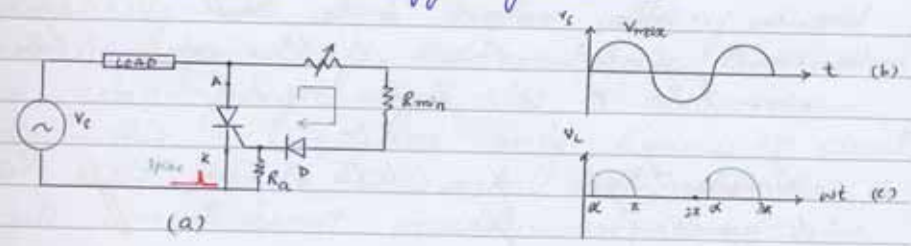 LOAD
A
Rmin
Vs
K
D
Ra
(a)
Vs
Vmax
t
(b)
VL
α
π
2π
α
3π
ωt
(c)